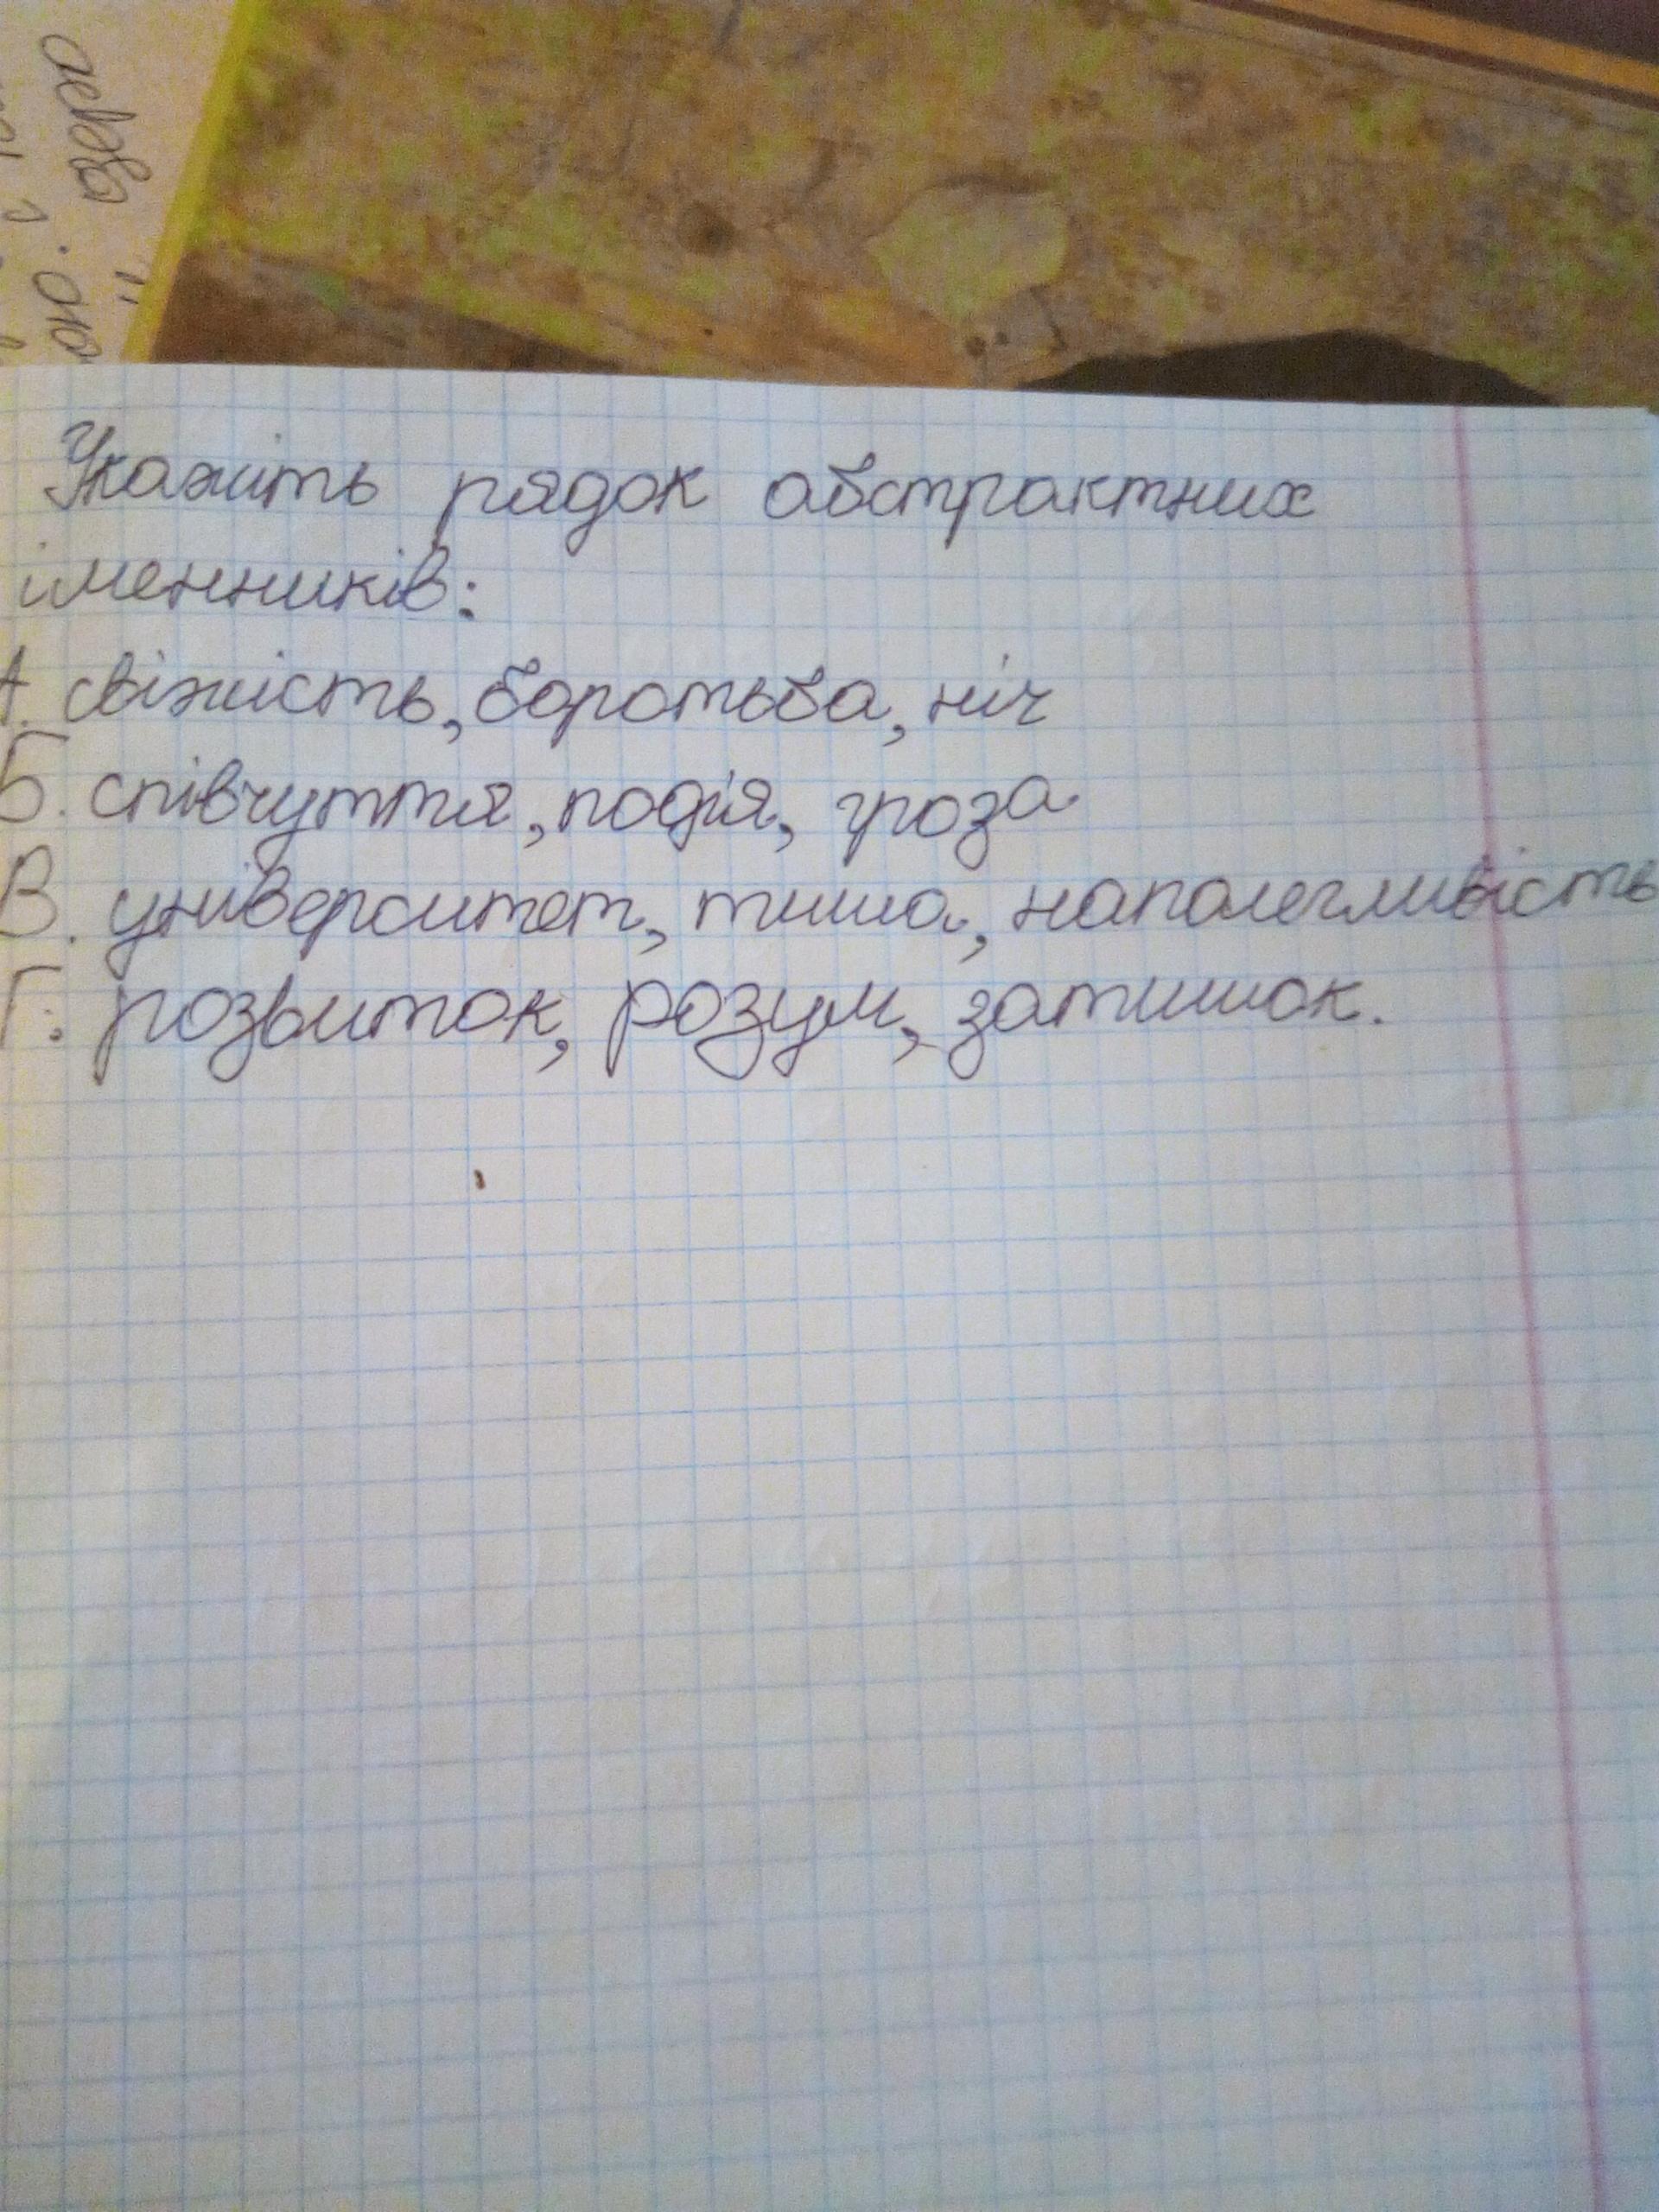 озеро
Укажіть рядок абстрактних
іменників:
А. свіжість, боротьба, ніч
Б. співчуття, подія, гроза
В. університет, тиша, наполегливість
Г. розвиток, розум, затишок.